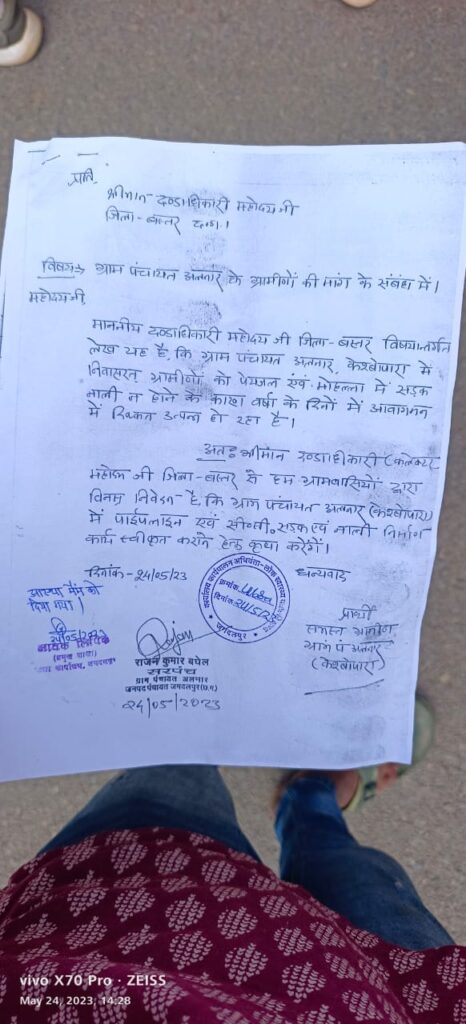 प्रति,
श्रीमान दण्डाधिकारी महोदय जी
जिला - बस्तर छ.ग.।
विषय:- ग्राम पंचायत अलनार के ग्रामीणों की मांग के संबंध में।
महोदय जी,
माननीय दण्डाधिकारी महोदय जी जिला-बस्तर विषयान्तर्गत
लेख यह है, कि ग्राम पंचायत अलनार, केश्बोपारा में
निवासरत ग्रामीणों को पेयजल एवं मोहल्ला में सड़क
नाली न होने के कारण वर्षा के दिनों में आवागमन
में दिक्कत उत्पन्न हो रहा है।
अतः श्रीमान दण्डाधिकारी (कलेक्टर
महोदय जी जिला-बस्तर से हम ग्रामवासियों द्वारा
विनम्र निवेदन है, कि ग्राम पंचायत अलनार (केश्बोपारा)
में पाईपलाइन एवं सी०सी० सड़क एवं नाली निर्माण
कार्य स्वीकृत कराने हेतु कृपा करेंगे।
दिनांक- 24/05/23 धन्यवाद
आस्था मैम को
दिया गया।
24/05/2023
आवक लिपिक
कार्यालय कार्यपालन अभियंता लोक स्वास्थ्य
क्रमांक
दिनांक 24/5/23
जगदलपुर
राजन कुमार बघेल
सरपंच
ग्राम पंचायत अलनार
जनपद पंचायत जगदलपुर (छ.ग.)
24/05/2023
प्रार्थी
समस्त ग्रामीण
ग्राम पं अलनार
(केश्बोपारा)
vivo X70 Pro · ZEISS
May 24, 2023, 14:28